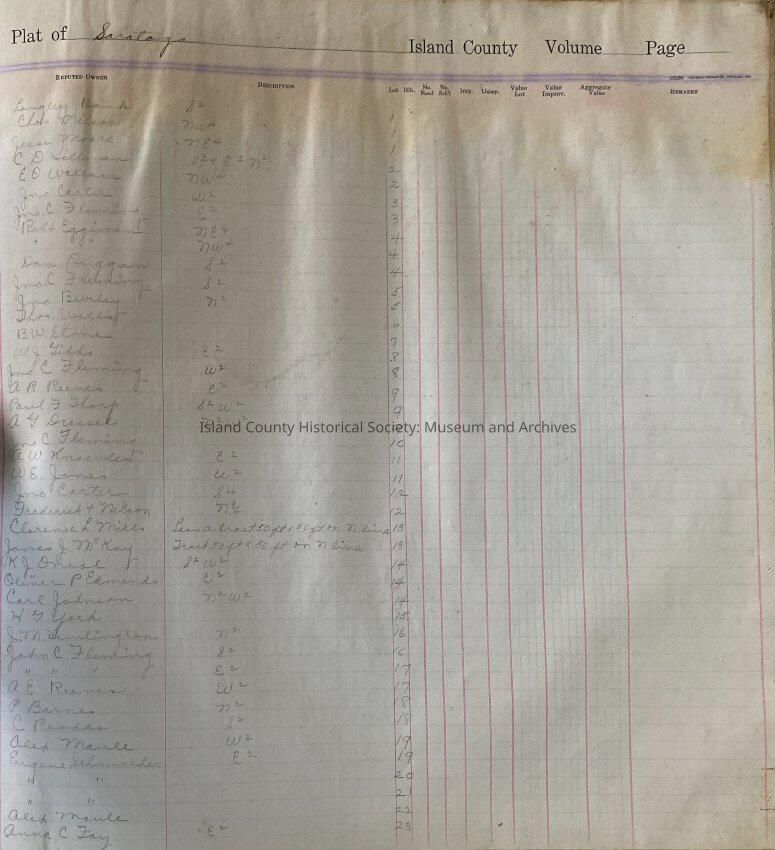 Plat of Saratoga Island County Volume Page
REPUTED OWNER DESCRIPTION Lot Blk. No. Road No. Sch'l Imp. Unimp. Value Lot Value Improv. Aggregate Value REMARKS
Langley Bank S2 1
Chas Nelson NW4 1
Jesse Moore NE4 1
C D Hillman S2 & E2 N2 2
E O Wallace NW4 2
Jno Carter W2 3
Jno C Fleming E2 3
Robt Eggiman NE4 4
" " NW4 4
Dan Duggan S2 4
Jno. C Fleming S2 5
Jno Burley N2 5
Thos. Wills 6
B W Etons 7
W J Tibbs E2 8
Jno C Fleming W2 8
A R Reeves E2 9
Paul F Thorp S2 W2 9
A G Dresser
Island County Historical Society: Museum and Archives
Jno C Fleming 10
A W Knowles E2 11
W E Jones W2 11
Jno Carter S4 12
Frederick Nelson 12
Clarence L Mills Less a tract 50 ft x 50 ft on N line 13
James J McKay Tract 50 ft x 50 ft on N line 13
K J S2 W2 14
Oliver P Edmonds E2 14
Carl Johnson N2 W2 14
H G York 15
J. M. Huntington N2 16
John C Fleming S2 16
" " " E2 17
A E Reeves W2 17
P Barnes N2 18
C S2 18
Alex Maule W2 19
Eugene Schumacher E2 19
" " 20
" " 21
Alex Maule 22
Anna C Fay E2 23